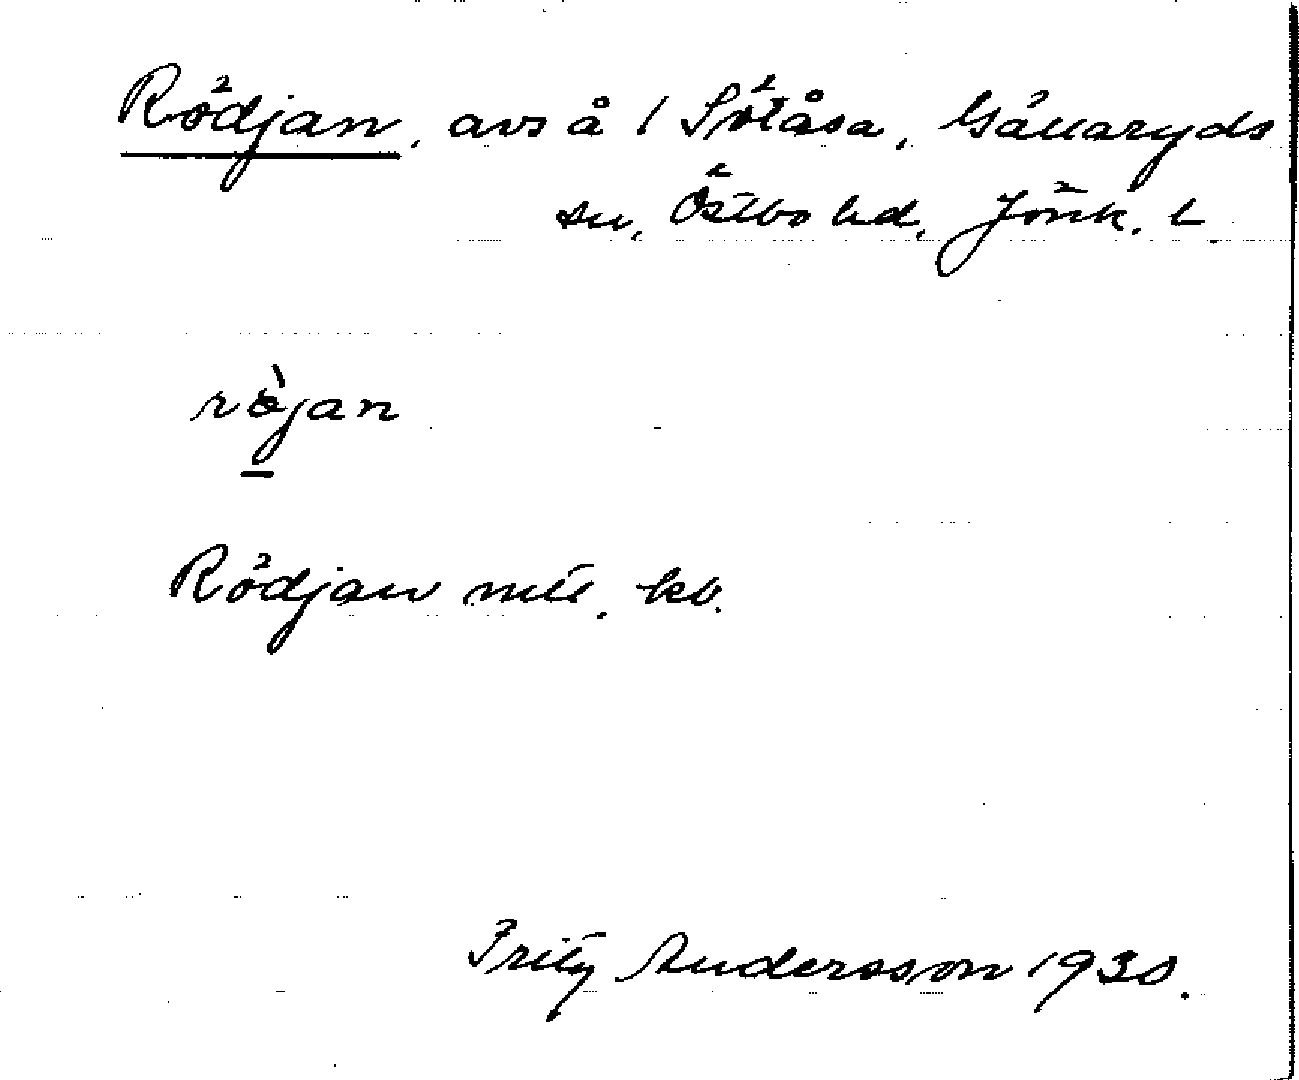 Rödjan, avs å / Sötåsa, Gållaryds
sn, Östbo hd, Jönk. l
röjan
Rödjan utt. kb.
Fritz Andersson 1930.